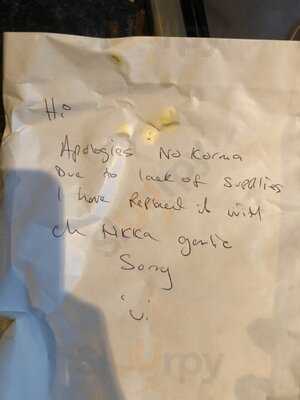 Hi
Apologies No Korma
Due to lack of supplies
I have Replaced it with
ch tikka garlic
Sorry